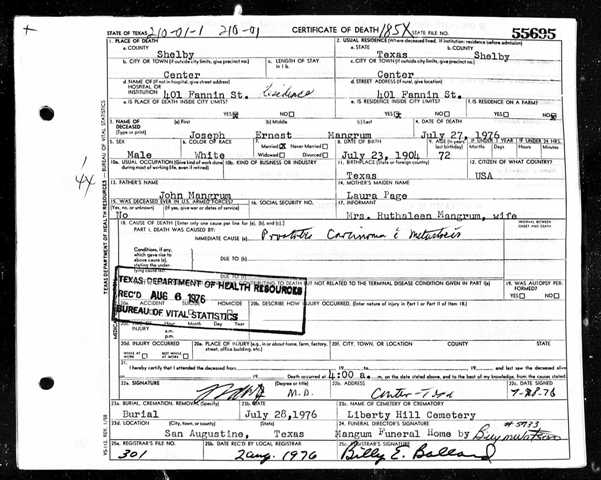 STATE OF TEXAS 210-01-1 210-01 CERTIFICATE OF DEATH 185X STATE FILE NO. 55695
1. PLACE OF DEATH 2. USUAL RESIDENCE (Where deceased lived. If institution: residence before admission)
a. COUNTY a. STATE b. COUNTY
Shelby Texas Shelby
b. CITY OR TOWN (If outside city limits, give precinct no.) c. LENGTH OF STAY in 1 b. c. CITY OR TOWN (If outside city limits, give precinct no.)
Center Center
d. NAME OF (If not in hospital, give street address) HOSPITAL OR INSTITUTION d. STREET ADDRESS (If rural, give location)
401 Fannin St. residence 401 Fannin St.
e. IS PLACE OF DEATH INSIDE CITY LIMITS? e. IS RESIDENCE INSIDE CITY LIMITS? f. IS RESIDENCE ON A FARM?
YES NO YES NO YES NO
3. NAME OF DECEASED (Type or print) (a) First (b) Middle (c) Last 4. DATE OF DEATH
Joseph Ernest Mangrum July 27, 1976
5. SEX 6. COLOR OR RACE 7. Married Never Married Widowed Divorced 8. DATE OF BIRTH 9. AGE (In years last birthday) IF UNDER 1 YEAR IF UNDER 24 HRS.
Months Days Hours Min.
Male White July 23, 1904 72
10a. USUAL OCCUPATION (Give kind of work done during most of working life, even if retired) 10b. KIND OF BUSINESS OR INDUSTRY 11. BIRTHPLACE (State or foreign country) 12. CITIZEN OF WHAT COUNTRY?
Texas USA
13. FATHER'S NAME 14. MOTHER'S MAIDEN NAME
John Mangrum Laura Page
15. WAS DECEASED EVER IN U.S. ARMED FORCES? 16. SOCIAL SECURITY NO. 17. INFORMANT
(Yes, no, or unknown) (If yes, give war or dates of service)
No Mrs. Ruthaleen Mangrum, wife
18. CAUSE OF DEATH (Enter only one cause per line for (a), (b), and (c).) INTERVAL BETWEEN ONSET AND DEATH
PART I. DEATH WAS CAUSED BY:
IMMEDIATE CAUSE (a) Prostate Carcinoma c̄ metastasis
Conditions, if any, which gave rise to above cause (a), stating the underlying cause last.
DUE TO (b)
DUE TO (c)
CONTRIBUTING TO DEATH BUT NOT RELATED TO THE TERMINAL DISEASE CONDITION GIVEN IN PART I(a) 19. WAS AUTOPSY PERFORMED?
YES NO
TEXAS DEPARTMENT OF HEALTH RESOURCES
REC'D AUG 6 1976
BUREAU OF VITAL STATISTICS
ACCIDENT SUICIDE HOMICIDE 20b. DESCRIBE HOW INJURY OCCURRED. (Enter nature of injury in Part I or Part II of item 18.)
INJURY Hour Month Day Year
a.m.
p.m.
20d. INJURY OCCURRED 20e. PLACE OF INJURY (e.g., in or about home, farm, factory, street, office building, etc.) 20f. CITY, TOWN, OR LOCATION COUNTY STATE
WHILE AT WORK NOT WHILE AT WORK
21. I hereby certify that I attended the deceased from 19
19 Death occurred at 4:00 a. m. on the date stated above, and to the best of my knowledge, from the causes stated.
22a. SIGNATURE (Degree or title) 22b. ADDRESS 22c. DATE SIGNED
M.D. Center-Texas 7-28-76
23a. BURIAL, CREMATION, REMOVAL (Specify) 23b. DATE 23c. NAME OF CEMETERY OR CREMATORY
Burial July 28, 1976 Liberty Hill Cemetery
23d. LOCATION (City, town, or county) (State) 24. FUNERAL DIRECTOR'S SIGNATURE # 5733
San Augustine, Texas Mangum Funeral Home by
25a. REGISTRAR'S FILE NO. 25b. DATE REC'D BY LOCAL REGISTRAR 25c. REGISTRAR'S SIGNATURE
301 2 aug. 1976 Billy E. Ballard
TEXAS DEPARTMENT OF HEALTH RESOURCES — BUREAU OF VITAL STATISTICS
4X